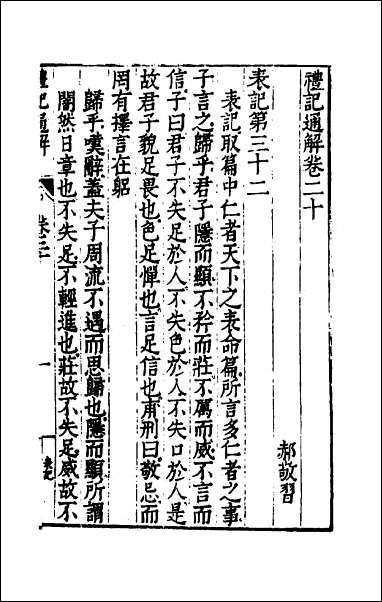 禮記通解卷二十
郝敬習
表記第三十二
表記取篇中仁者天下之表命篇所言多仁者之事
子言之歸乎君子隱而顯不矜而莊不厲而威不言而
信子曰君子不失足於人不失色於人不失口於人是
故君子貌足畏也色足憚也言足信也甫刑曰敬忌而
罔有擇言在躬
歸乎嘆辭蓋夫子周流不遇而思歸也隱而顯所謂
闇然日章也不失足不輕進也莊故不失足威故不
禮記通解
卷二十
一
表記